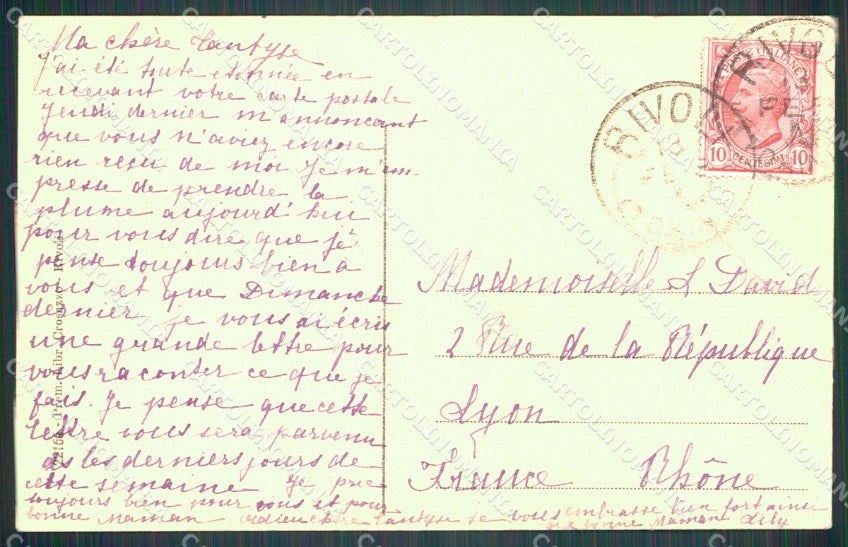 Ma chère Tantyse
J'ai été toute étonnée en
recevant votre carte postale
Jeudi dernier m'annoncant
que vous n'aviez encore
rien reçu de moi Je m'em
presse de prendre la
plume aujourd'hui
pour vous dire que je
pense toujours bien à
vous et que Dimanche
dernier je vous ai écris
une grande lettre pour
vous raconter ce que je
fais. Je pense que cette
lettre vous sera parvenu
les derniers jours de
cette semaine Je prie
toujours bien pour vous et pour
bonne maman adieu chère Tantyse je vous embrasse bien fort ainsi
que bonne Maman Lily
Prem. Libr. Crosazzo Rivoli
RIVOLI
RIVOLI
10 CENTESIMI 10
Mademoiselle L David
2 Rue de la République
Lyon
France Rhône
CARTOLINOMANIA